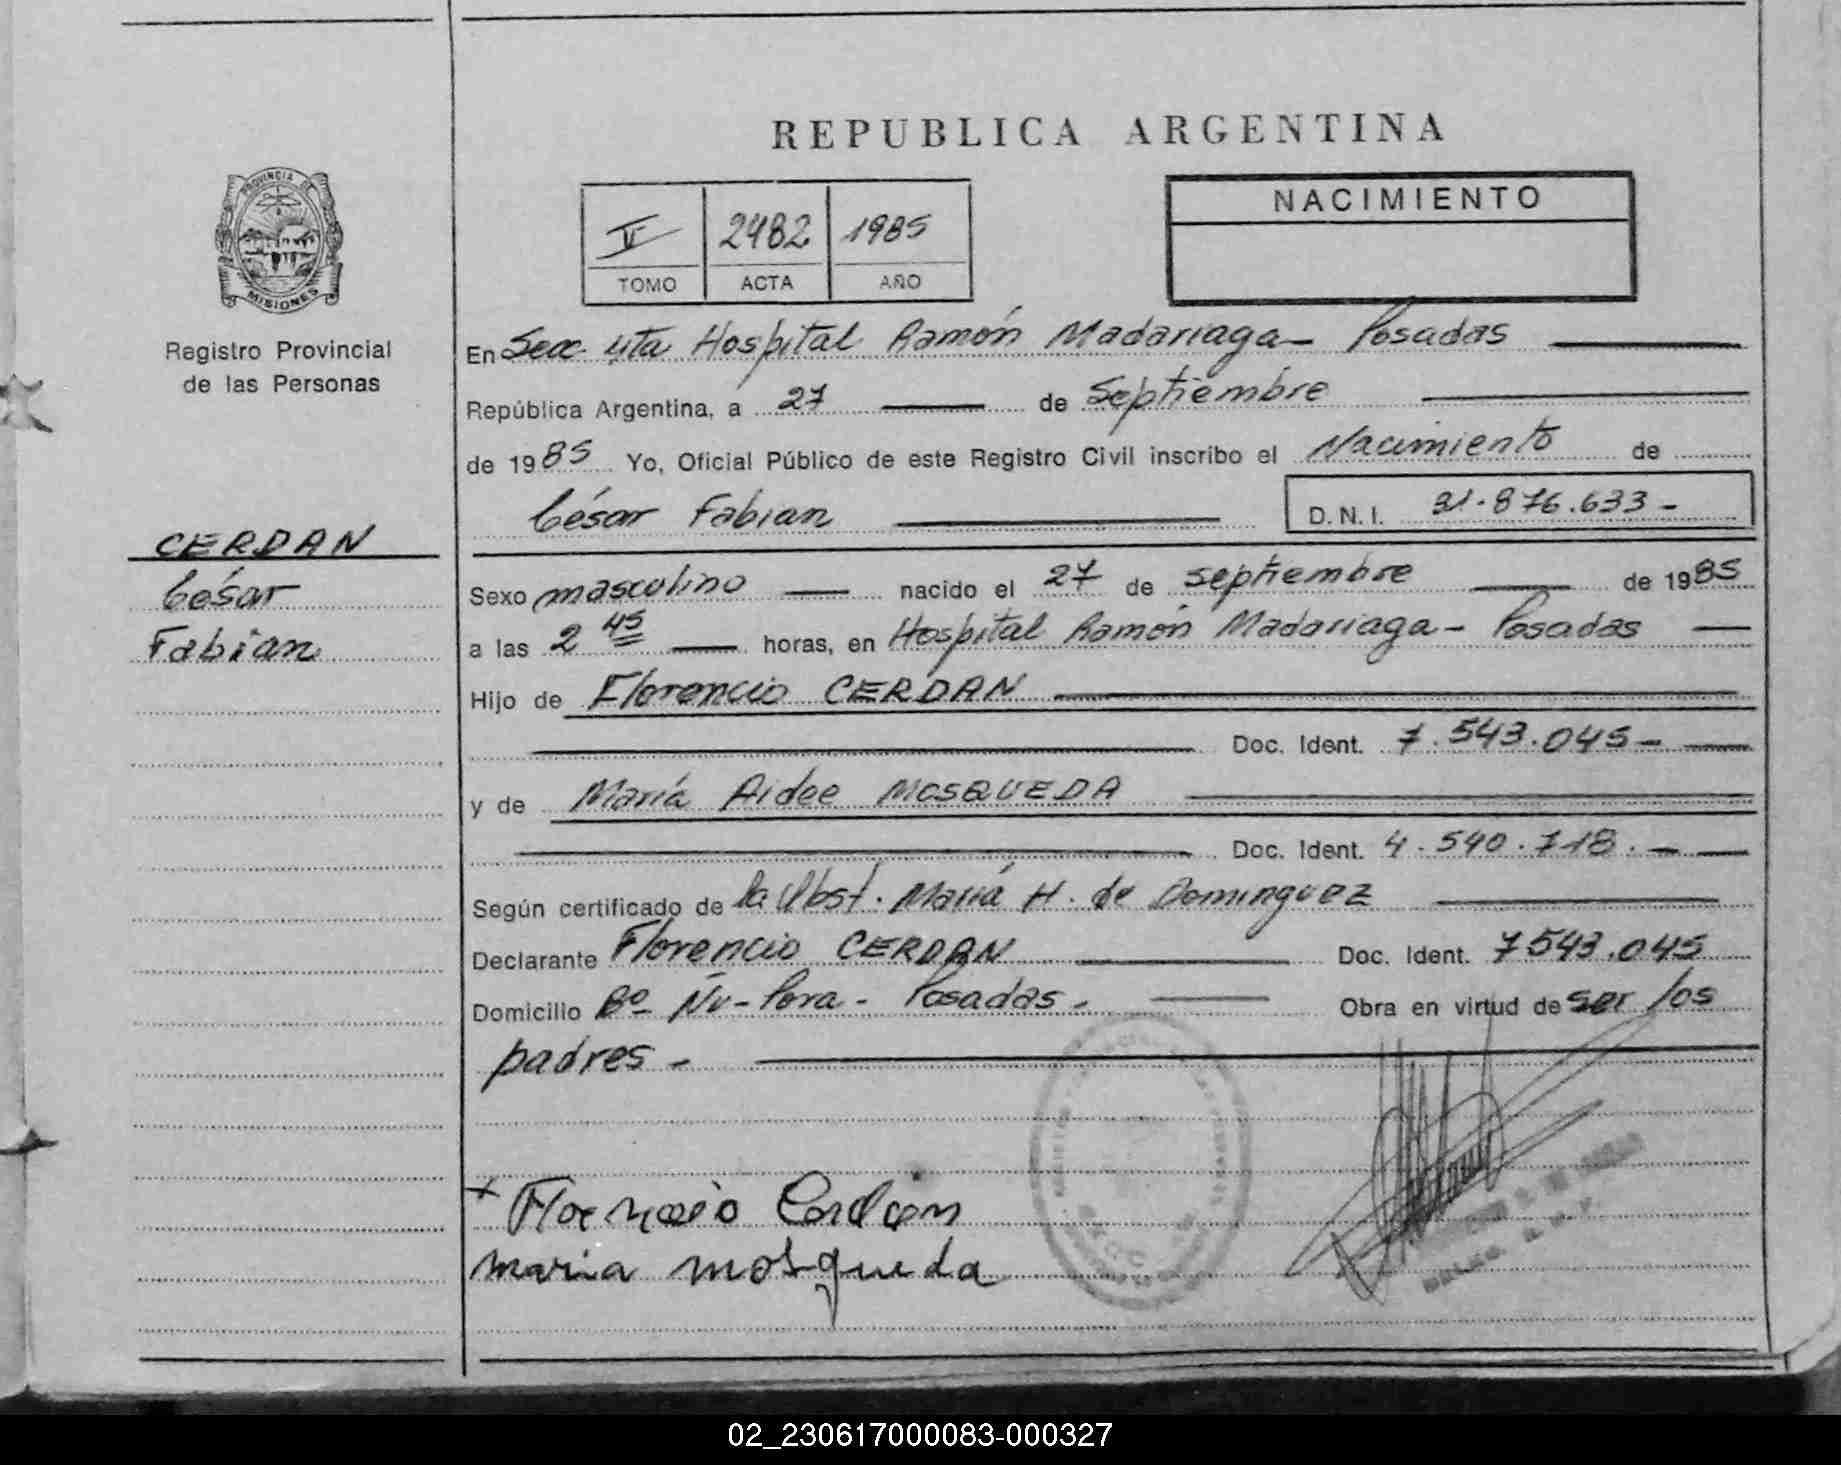 REPUBLICA ARGENTINA
PROVINCIA DE
MISIONES
Registro Provincial
de las Personas
2482 1985
TOMO ACTA AÑO
NACIMIENTO
En Secc 4ta Hospital Ramón Madariaga - Posadas
República Argentina, a 27 de Septiembre
de 1985 Yo, Oficial Público de este Registro Civil inscribo el Nacimiento de
César Fabian D.N.I. 31.876.633 -
CERDAN
César
Fabian
Sexo masculino nacido el 27 de septiembre de 1985
a las 2 45 horas, en Hospital Ramón Madariaga - Posadas
Hijo de Florencio CERDAN
Doc. Ident. 7.543.045 -
y de María Aidee MOSQUEDA
Doc. Ident. 4.540.718. -
Según certificado de la Obst. María H. de Dominguez
Declarante Florencio CERDAN Doc. Ident. 7543.045
Domicilio Bº Ñu-Pora - Posadas - Obra en virtud de ser los
padres -
+ Florencio Cerdan
maria mosqueda
02_230617000083-000327